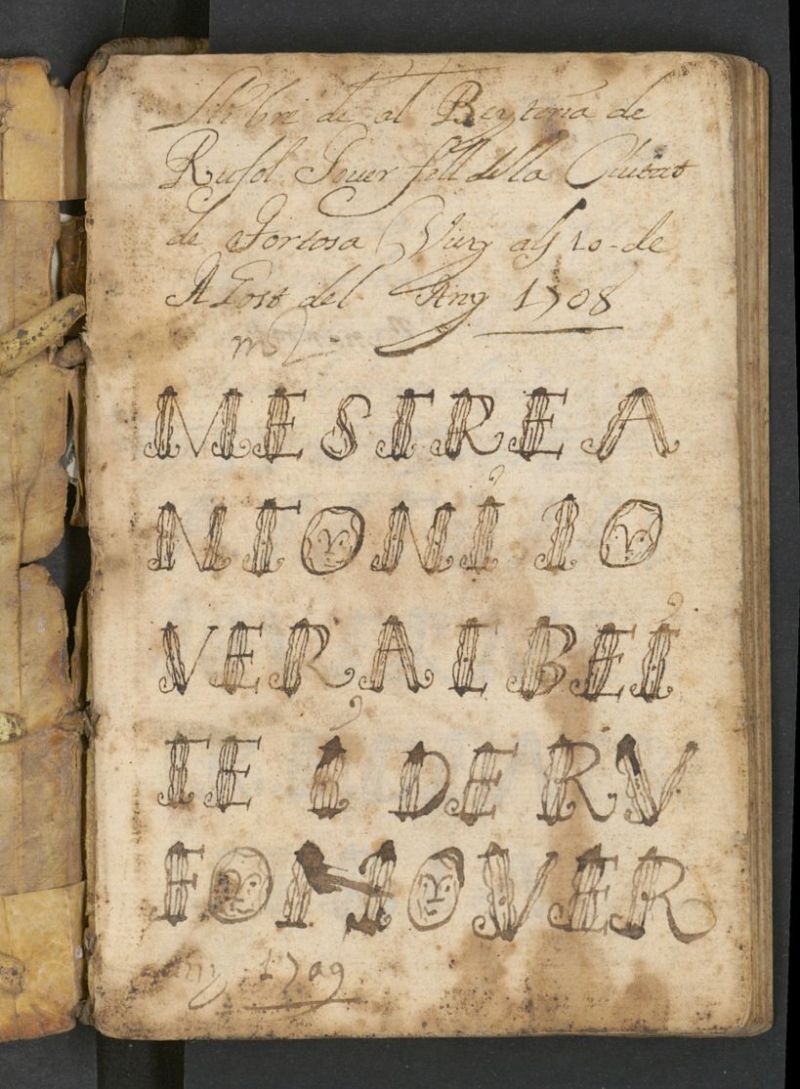 Llibre de al Beyteria de
Rufol Jover fill de la Ciutat
de Tortosa Vuy als 10 de
AGost del Any 1708
MESTRE A
NTONI IO
VER ALBEI
TE I DE RV
FOL IOVER
ny 1709